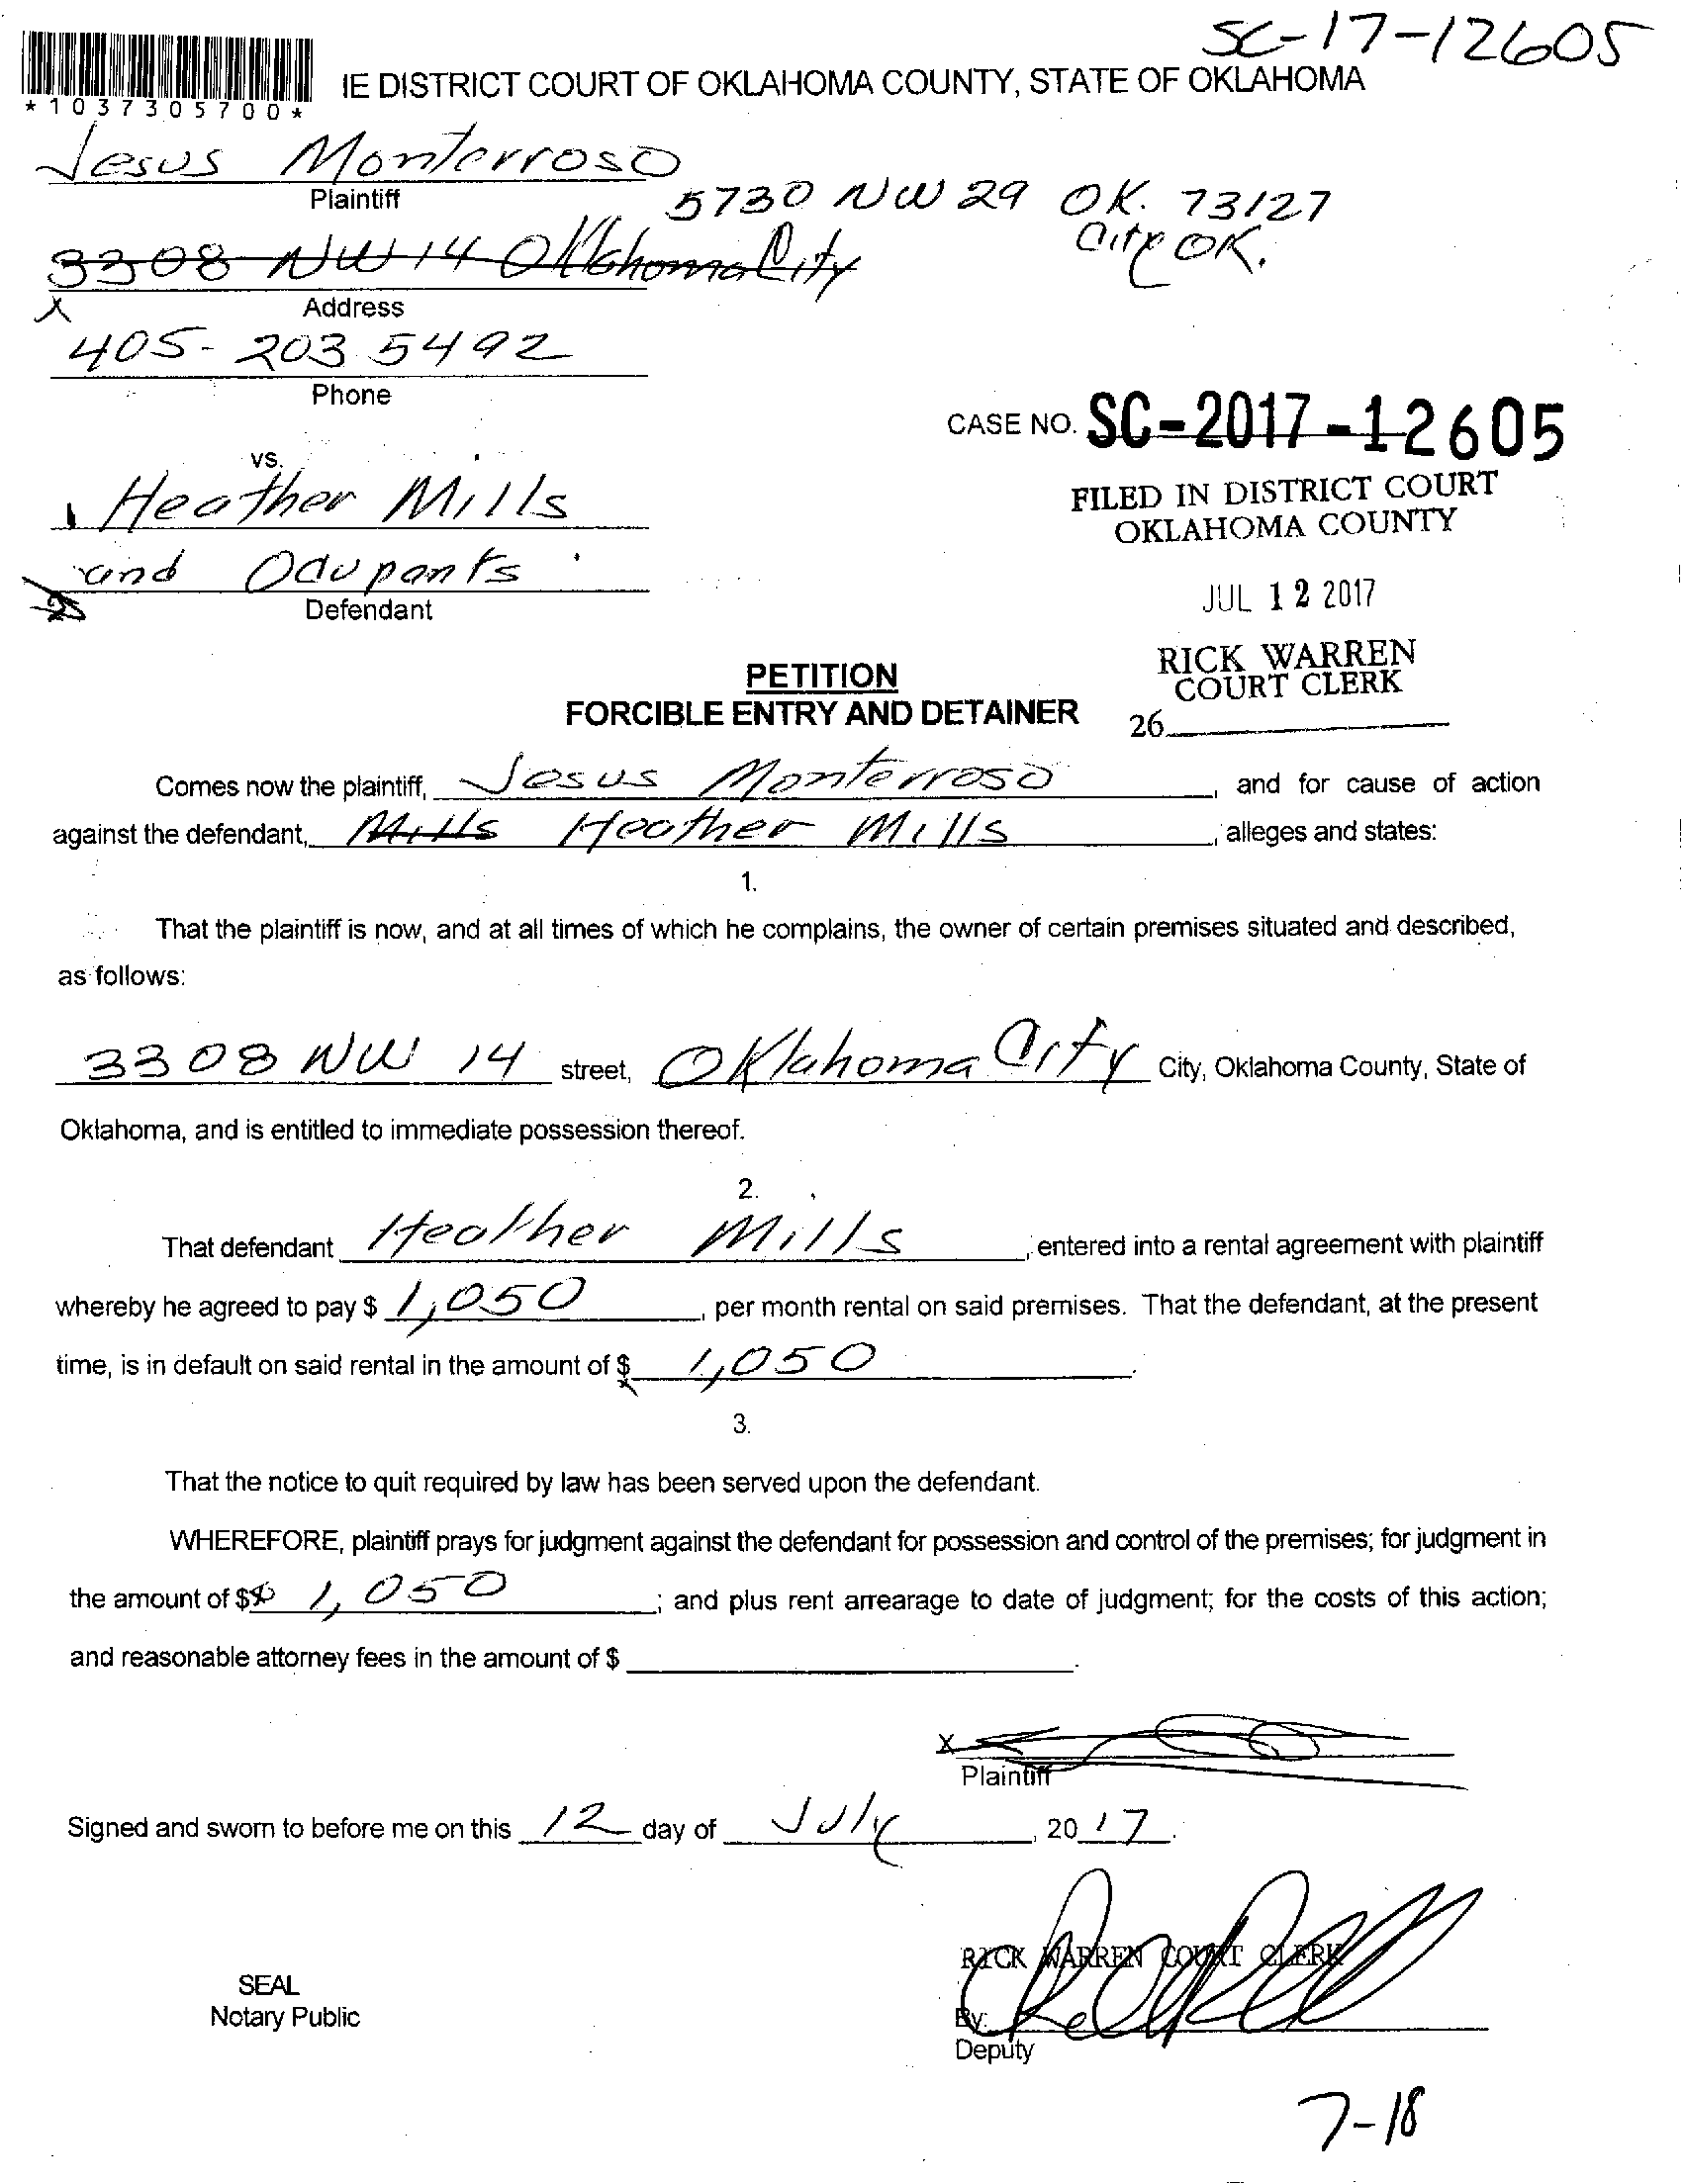 SC-17-12605
IE DISTRICT COURT OF OKLAHOMA COUNTY, STATE OF OKLAHOMA
*1037305700*
Jesus Monterroso
Plaintiff
5730 NW 29 OK. 73127
City OK.
3308 NW 14 Oklahoma City
Address
405-203 5492
Phone
CASE NO. SC-2017-12605
vs.
Heather Mills
FILED IN DISTRICT COURT
OKLAHOMA COUNTY
and Ocupants
Defendant
JUL 12 2017
RICK WARREN
COURT CLERK
26
PETITION
FORCIBLE ENTRY AND DETAINER
Comes now the plaintiff, Jesus Monterroso, and for cause of action
against the defendant, Mills Heather Mills, alleges and states:
1.
That the plaintiff is now, and at all times of which he complains, the owner of certain premises situated and described,
as follows:
3308 NW 14 street, Oklahoma City City, Oklahoma County, State of
Oklahoma, and is entitled to immediate possession thereof.
2.
That defendant Heather Mills, entered into a rental agreement with plaintiff
whereby he agreed to pay $ 1,050, per month rental on said premises. That the defendant, at the present
time, is in default on said rental in the amount of $ 1,050.
3.
That the notice to quit required by law has been served upon the defendant.
WHEREFORE, plaintiff prays for judgment against the defendant for possession and control of the premises; for judgment in
the amount of $$ 1,050; and plus rent arrearage to date of judgment; for the costs of this action;
and reasonable attorney fees in the amount of $ .
X
Plaintiff
Signed and sworn to before me on this 12 day of July, 20 17.
RICK WARREN COURT CLERK
SEAL
Notary Public
By:
Deputy
7-18